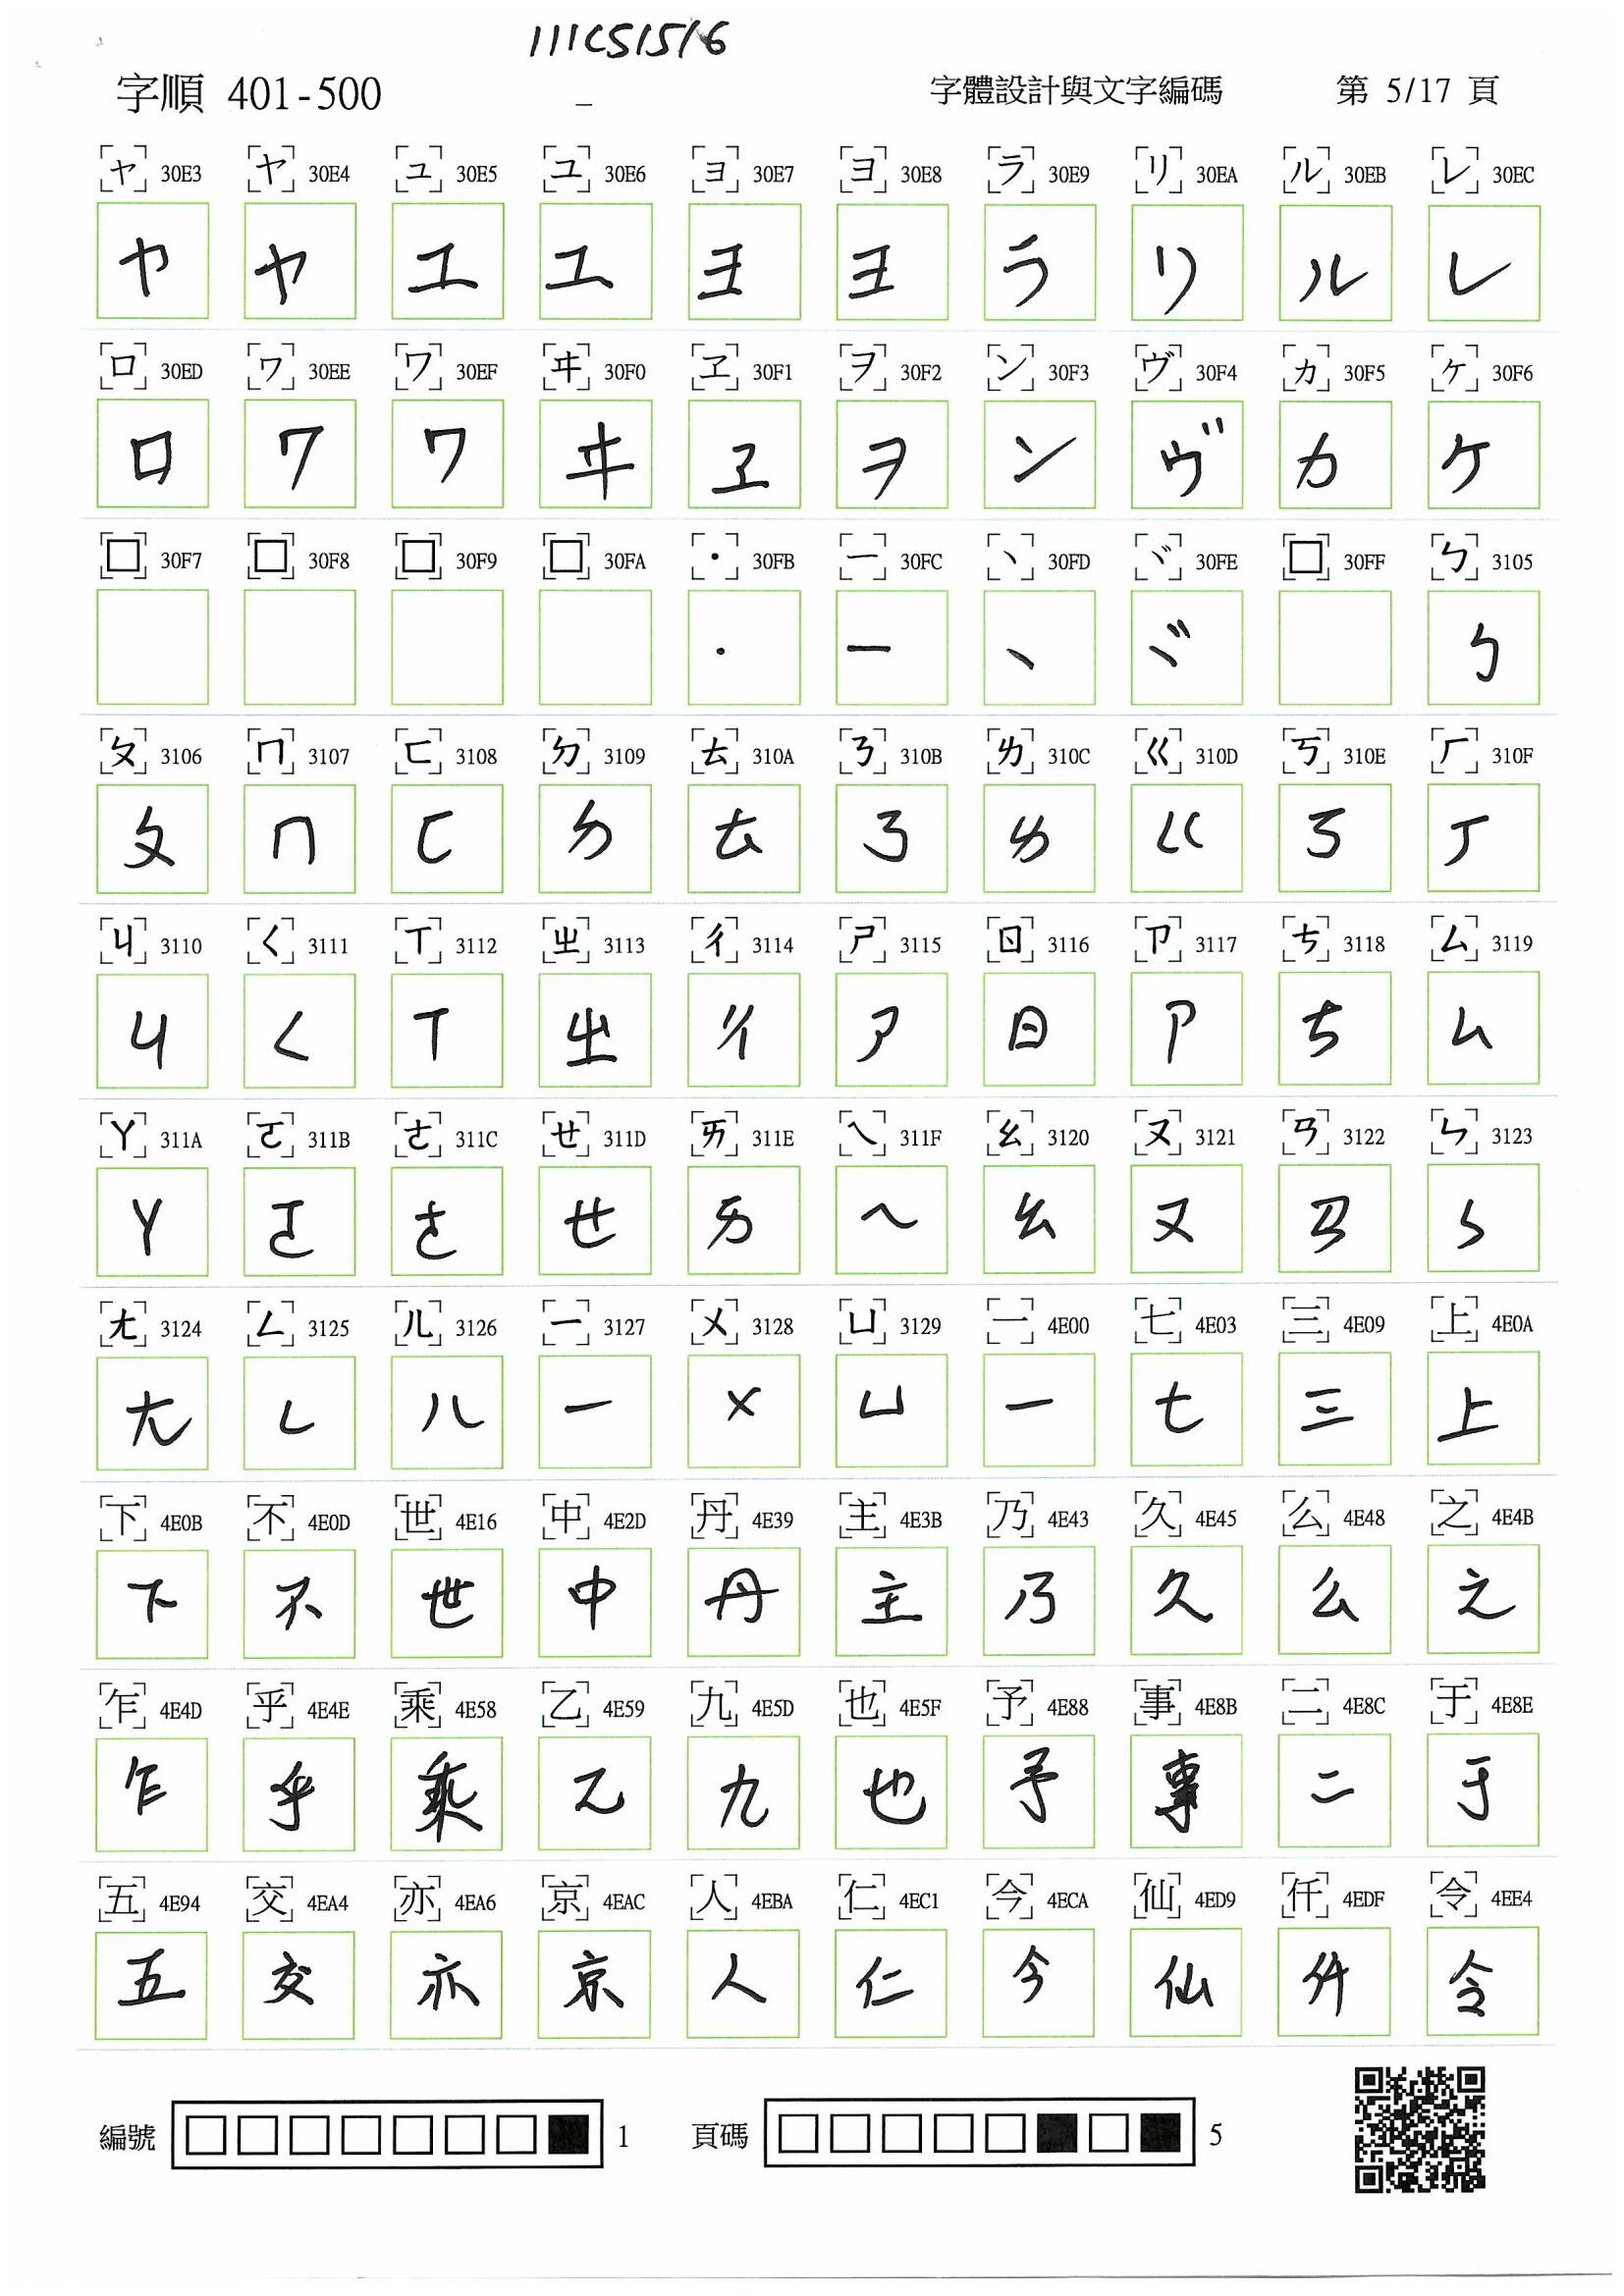 111CS1516
字順 401-500 _ 字體設計與文字編碼 第 5/17 頁
ャ 30E3 ヤ 30E4 ュ 30E5 ユ 30E6 ョ 30E7 ヨ 30E8 ラ 30E9 リ 30EA ル 30EB レ 30EC
ヤ ヤ ユ ユ ヨ ヨ ラ リ ル レ
ロ 30ED ヮ 30EE ワ 30EF ヰ 30F0 ヱ 30F1 ヲ 30F2 ン 30F3 ヴ 30F4 ヵ 30F5 ヶ 30F6
ロ ワ ワ ヰ ヱ ヲ ン ヴ カ ケ
□ 30F7 □ 30F8 □ 30F9 □ 30FA ・ 30FB ー 30FC ヽ 30FD ヾ 30FE □ 30FF ㄅ 3105
・ ー ヽ ヾ ㄅ
ㄆ 3106 ㄇ 3107 ㄈ 3108 ㄉ 3109 ㄊ 310A ㄋ 310B ㄌ 310C ㄍ 310D ㄎ 310E ㄏ 310F
ㄆ ㄇ ㄈ ㄉ ㄊ ㄋ ㄌ ㄍ ㄎ ㄏ
ㄐ 3110 ㄑ 3111 ㄒ 3112 ㄓ 3113 ㄔ 3114 ㄕ 3115 ㄖ 3116 ㄗ 3117 ㄘ 3118 ㄙ 3119
ㄐ ㄑ ㄒ ㄓ ㄔ ㄕ ㄖ ㄗ ㄘ ㄙ
ㄚ 311A ㄛ 311B ㄜ 311C ㄝ 311D ㄞ 311E ㄟ 311F ㄠ 3120 ㄡ 3121 ㄢ 3122 ㄣ 3123
ㄚ ㄛ ㄜ ㄝ ㄞ ㄟ ㄠ ㄡ ㄢ ㄣ
ㄤ 3124 ㄥ 3125 ㄦ 3126 ㄧ 3127 ㄨ 3128 ㄩ 3129 一 4E00 七 4E03 三 4E09 上 4E0A
ㄤ ㄥ ㄦ ㄧ ㄨ ㄩ 一 七 三 上
下 4E0B 不 4E0D 世 4E16 中 4E2D 丹 4E39 主 4E3B 乃 4E43 久 4E45 么 4E48 之 4E4B
下 不 世 中 丹 主 乃 久 么 之
乍 4E4D 乎 4E4E 乘 4E58 乙 4E59 九 4E5D 也 4E5F 予 4E88 事 4E8B 二 4E8C 于 4E8E
乍 乎 乘 乙 九 也 予 事 二 于
五 4E94 交 4EA4 亦 4EA6 京 4EAC 人 4EBA 仁 4EC1 今 4ECA 仙 4ED9 仟 4EDF 令 4EE4
五 交 亦 京 人 仁 今 仙 仟 令
編號 1 頁碼 5